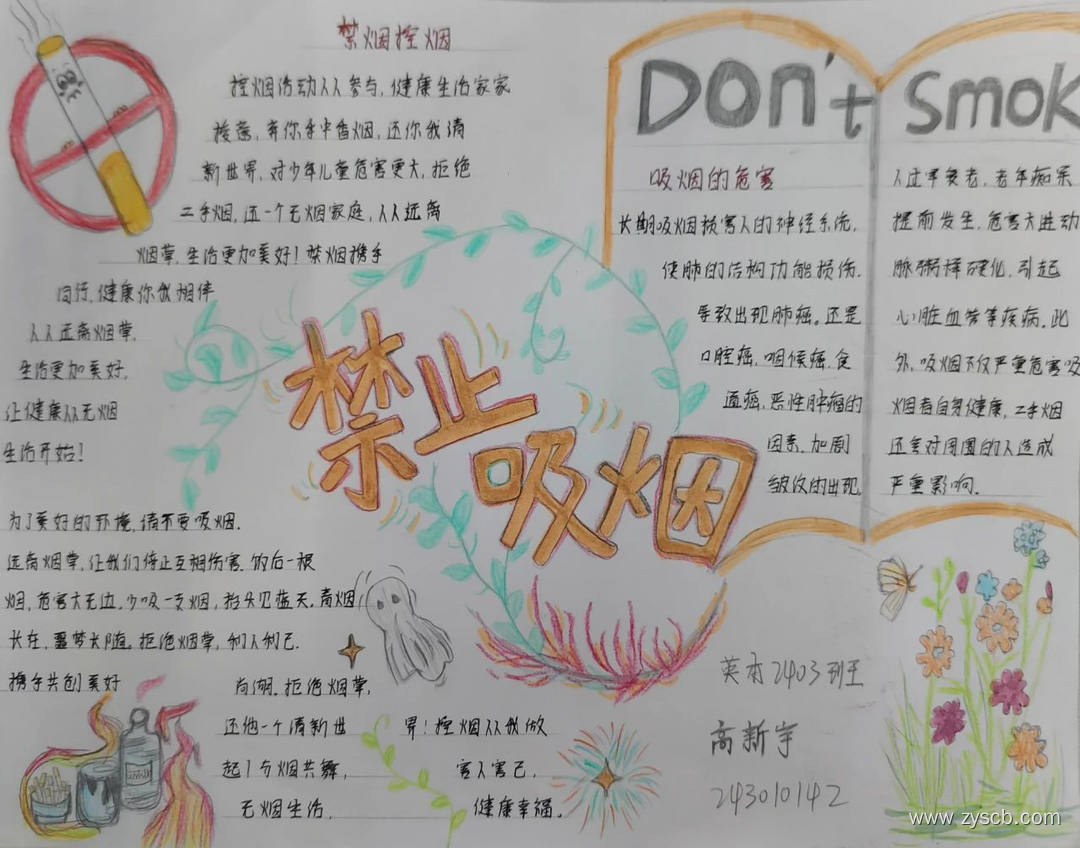 禁烟控烟
控烟活动人人参与,健康生活家家
接落,弃你手中香烟,还你我清
新世界,对少年儿童危害更大,拒绝
二手烟,还一个无烟家庭,人人远离
烟草,生活更加美好!禁烟携手
同行,健康你我相伴
人人远离烟草,
生活更加美好,
让健康从无烟
生活开始!
为了美好的环境,请不要吸烟.
远离烟草,让我们停止互相伤害.饭后一根
烟,危害大无边.少吸一支烟,抬头见蓝天.离烟
长在,噩梦长随。拒绝烟草,利人利己.
携手共创美好
向湖.拒绝烟草,
还他一个清新世
界!控烟从我做
起!与烟共舞,
害人害己,
无烟生活,
健康幸福。
禁止吸烟
Don't Smok
吸烟的危害
长期吸烟损害人的神经系统,
使肺的结构功能损伤.
导致出现肺癌。还是
口腔癌,咽候癌,食
道癌,恶性肿瘤的
因素.加剧
皱纹的出现
人过早衰老,老年痴呆
提前发生,危害大进动
脉粥样硬化,引起
心脏血管等疾病,此
外,吸烟不仅严重危害吸
烟者自身健康,二手烟
还会对周围的人造成
严重影响.
英本2403班
高新宇
243010142
www.zyscb.com